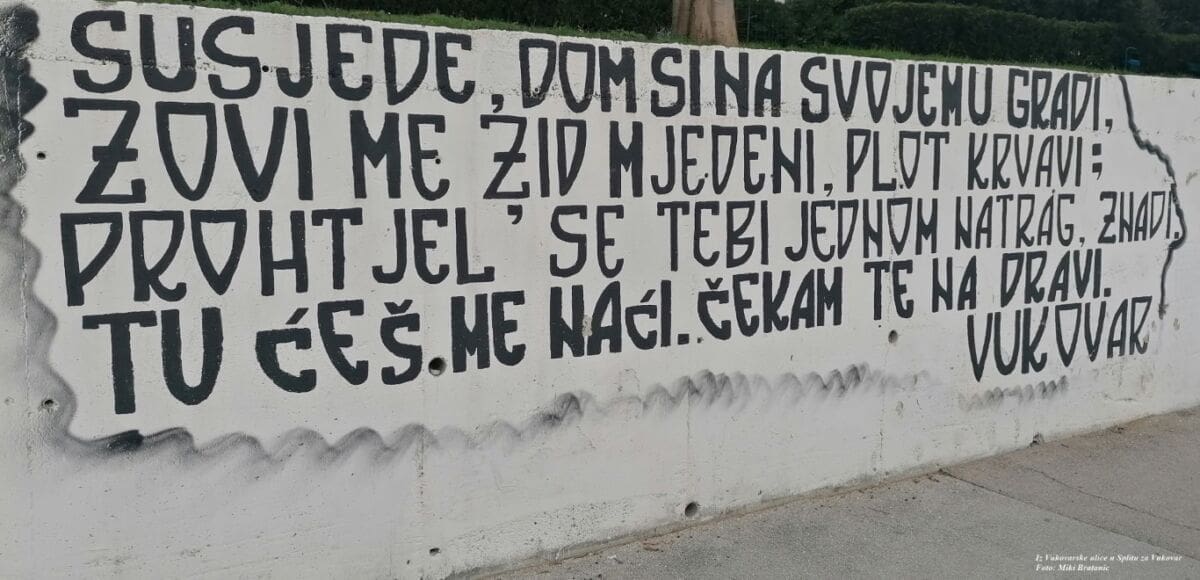 SUSJEDE, DOM SI NA SVOJEMU GRADI,
ZOVI ME ŽID MJEDENI, PLOT KRVAVI;
PROHTJEL' SE TEBI JEDNOM NATRAG, ZNADI.
TU ĆEŠ ME NAĆI. ČEKAM TE NA DRAVI.
VUKOVAR
Iz Vukovarske ulice u Splitu za Vukovar
Foto: Miki Bratanic